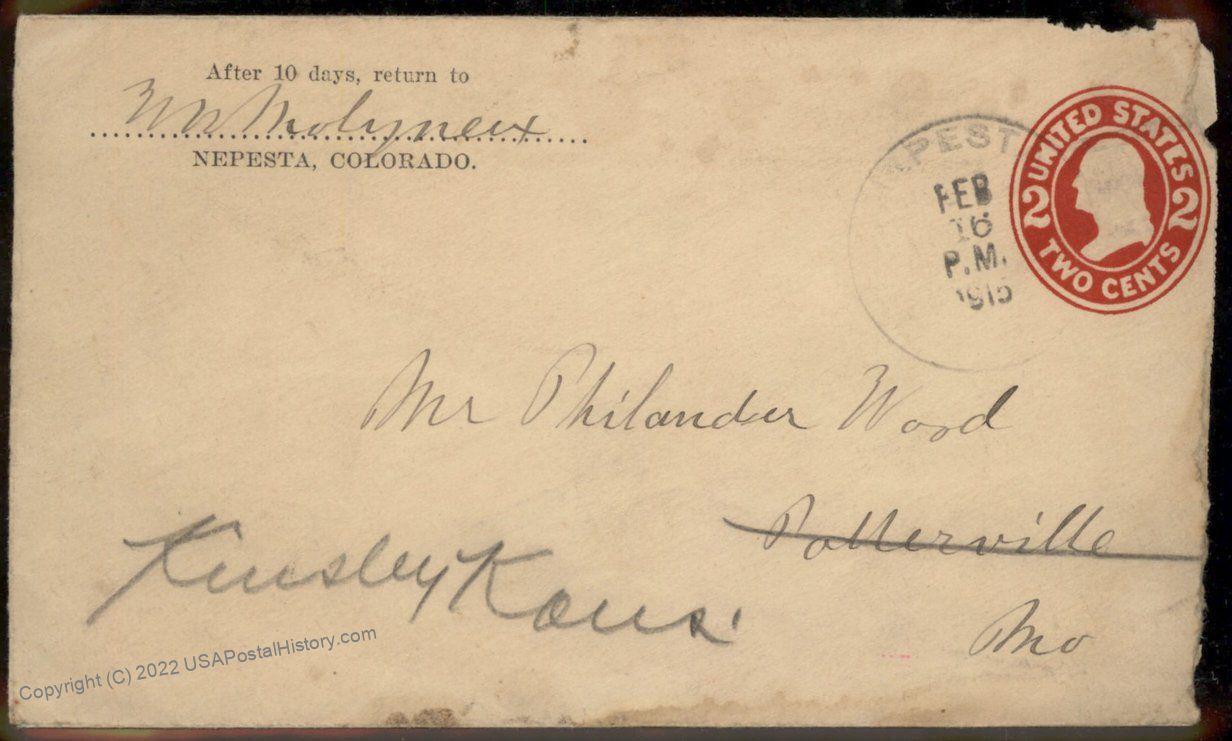 After 10 days, return to
Molyneux
NEPESTA, COLORADO.
FEB
16
P.M.
1915
UNITED STATES
2 2
TWO CENTS
Mr Philander Ward
Potterville
Mo
Kinsley Kans.
Copyright (C) 2022 USAPostalHistory.com